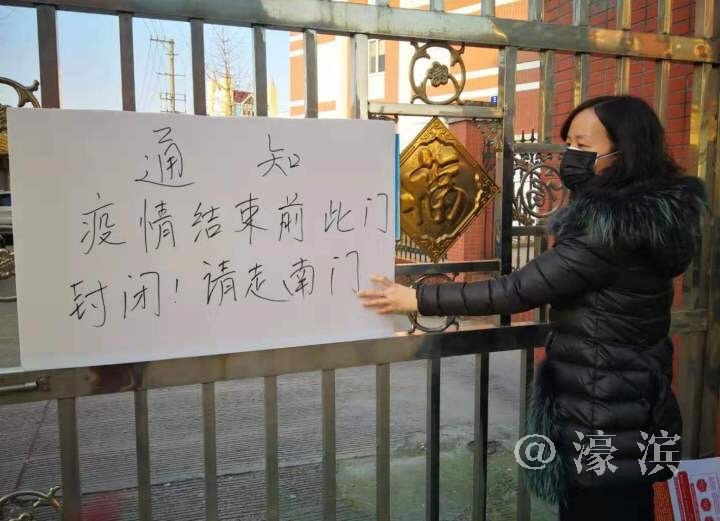 通知
疫情结束前此门
封闭！请走南门
福
@濠滨